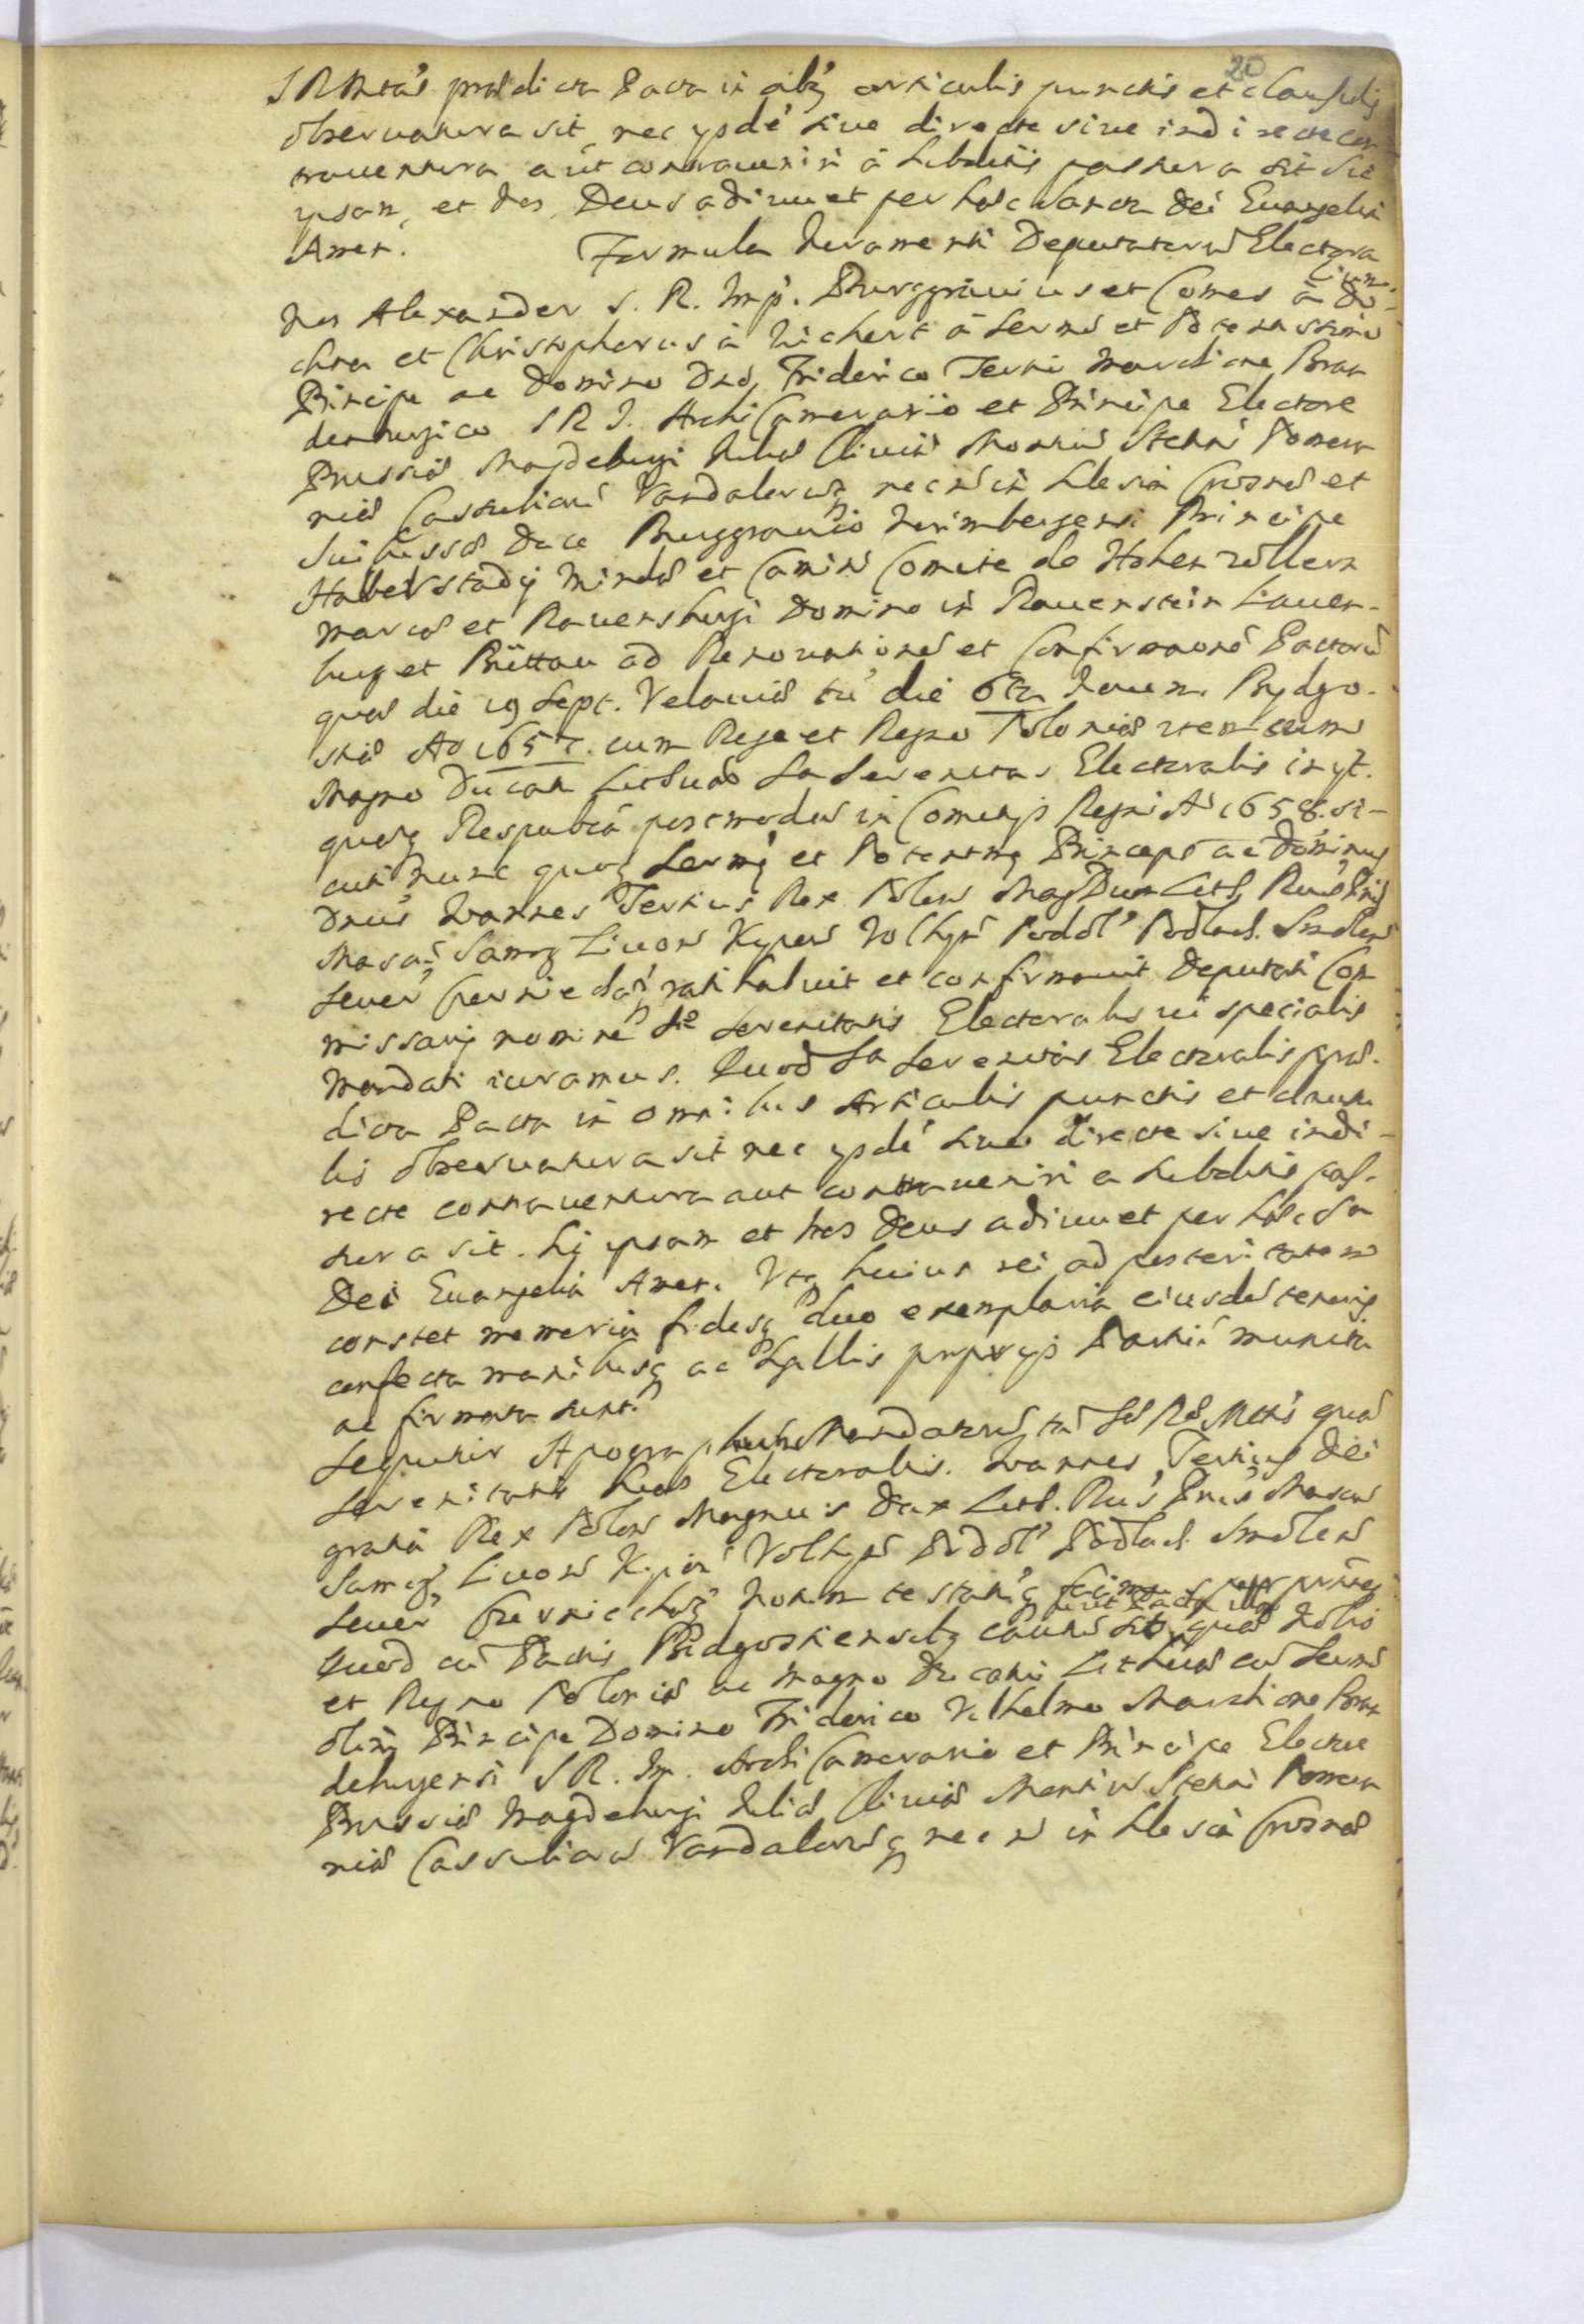 20
SRMtas praedicta Pacta in oibq articulis punctis et clausulis
observatura sit, nec ysdē sive directe sive indirecte con
traventura aut contraveniri à subditis passura sit Sic
ipsam, et nos, Deus adiuvet per haec Sancta Dei Evangelia
Amen. Formula Iuramenti Deputatorū Electora
lium.
Nos Alexander S. R. Imp. Burggravius et Comes à Do-
chna et Christophorus à à Sermo et Potentissimo
Principe ac Domino Dno, Friderico Tertio Marchione Bran
denburgico S R I. ArchiCamerario et Principe Electore
Prussiae Magdeburgi Iuliae Cliviae Montiū Stetini Pomera
niae Cassubiorū Vandalorumq necnō in Silesia Crosnae et
Suibussae Duce Burggravio Norimbergensi Principe
Halberstadij Mindae et Camini Comite de Hohenzollern
Marcae et Ravensburgi Domino in Ravenstein Lauen-
burg et Büttau ad Renovationē et Confirmationē Pactorū
quae die 19 Sept. Velaviae tū die 6ta Novem. Bydgo-
stiae Ao 1657. cum Rege et Regno Poloniae item cum
Magno Ducatu Lithuae Sa Serenitas Electoralis inyt.
quaeq Respublica postmodū in Comitijs Regni Ao 1658. si-
cuti nunc quoq Sermq et Potentmq Princeps ac Dominus
Dnus Ioannes Tertius Rex Polon Mag Dux Lith Rus Prus
Masa Samog Livon Kyov Volhyn Podol' Podlach. Smolen
Sever Czerniechoq rati habuit et confirmavit Deputati Com
missarij nomine Sae Serenitatis Electoralis vi specialis
Mandati iuramus. Quod Sa Serenitas Electoralis prae-
dicta Pacta in omnibus Articulis punctis et clausu
lis observatura sit nec ysdē sive directe sive indi-
recte contraventura aut contraveniri a subditis pas-
sura sit. Sic ipsam et nos Deus adiuvet per haec Sa
Dei Evangelia Amen. Utq huius rei ad posteritatem
constet memoria fidesq duo exemplaria eiusdē tenoris
confecta manibusq ac Sigillis proprijs Partiū munita
ac firmata sunt.
Sequitur Apographum Mandatorū tā Sae Rae Mtis quā
Serenitatis Suae Electoralis. Ioannes Tertius Dei
gratia Rex Polon Magnus Dux Lith. Rus Prus Masov
Samog Livon Kyov Volhyn Podol' Podlach Smolen
Sever Czerniechoq Notum testatūq facimus
Quod cū Pactis Bidgostiensibq cautū sit, quae Nobis
et Regno Poloniae ac Magno Ducatui Lithuae cū Sermo
olim Principe Domino Friderico Vilhelmo Marchione Bran
deburgensi S R. Im. ArchiCamerario et Principe Electore
Prussiae Magdeburgi Iuliae Cliviae Montiū Stetini Pomera
niae Cassubiorū Vandalorūq nec nō in Silesia Crosnae